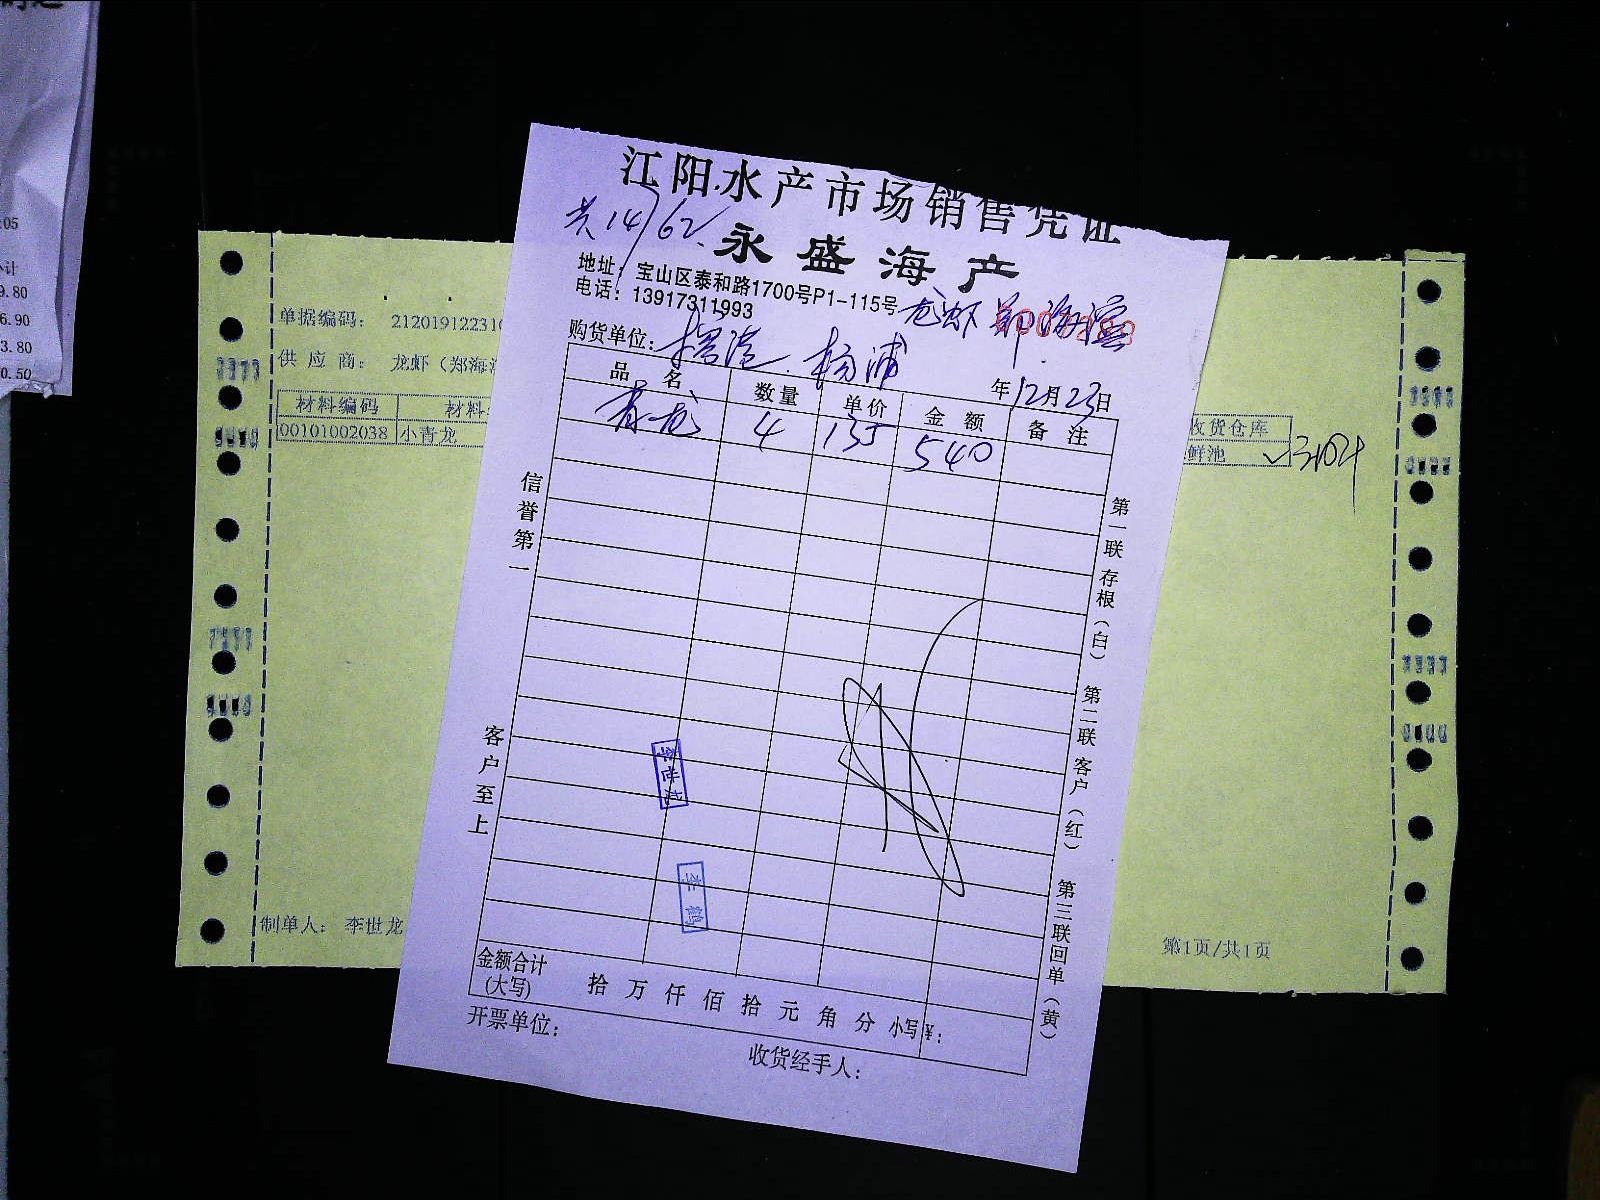 :05
小计
9.80
6.90
3.80
0.50
江阳水产市场销售凭证
共14/62
永盛海产
地址：宝山区泰和路1700号P1-115号
电话：13917311993
龙虾 郑海滢
购货单位： 杨浦
年12月23日
品名 数量 单价 金额 备注
青龙 4 135 540
信誉第一
客户至上
第一联存根（白） 第二联客户（红） 第三联回单（黄）
李世龙
李鹤
金额合计(大写) 拾 万 仟 佰 拾 元 角 分 小写¥：
开票单位：
收货经手人：
单据编码： 212019122310
供应商： 龙虾（郑海
材料编码 材料
收货仓库
00101002038 小青龙
鲜池
制单人： 李世龙
第1页/共1页